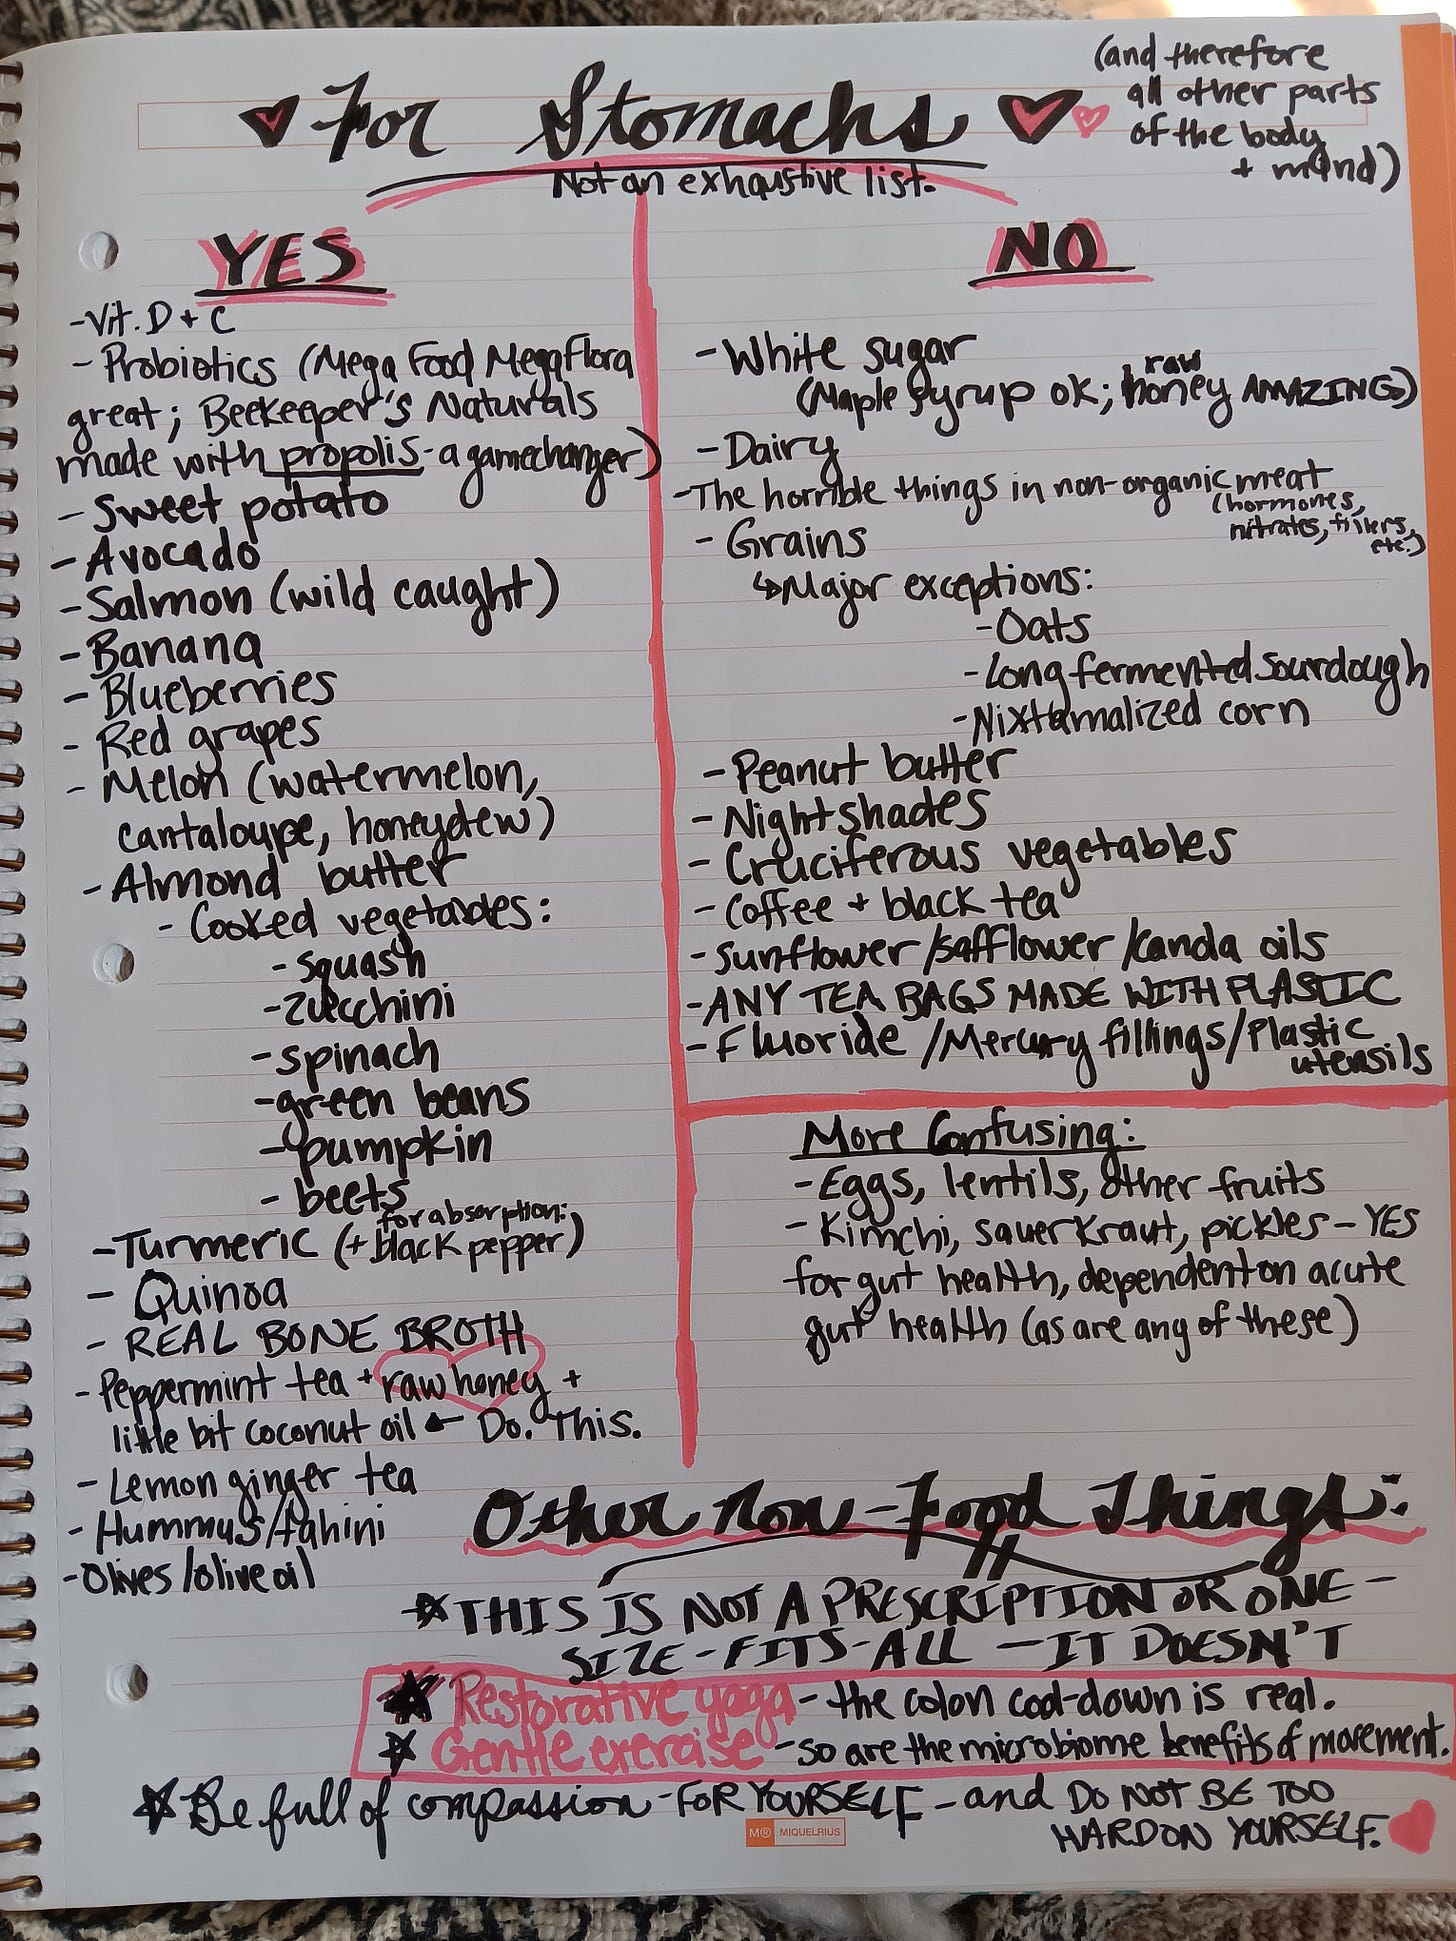 For Stomachs
(and therefore
all other parts
of the body
+ mind)
Not an exhaustive list.
YES
-Vit. D + C
- Probiotics (Mega Food MegaFlora
great; Beekeeper's Naturals
made with propolis - a gamechanger)
- Sweet potato
- Avocado
- Salmon (wild caught)
- Banana
- Blueberries
- Red grapes
- Melon (watermelon,
cantaloupe, honeydew)
- Almond butter
- Cooked vegetables:
- squash
- zucchini
- spinach
- green beans
- pumpkin
- beets
for absorption:
- Turmeric (+ black pepper)
- Quinoa
- REAL BONE BROTH
- Peppermint tea + raw honey +
little bit coconut oil ← Do. This.
- Lemon ginger tea
- Hummus/tahini
- Olives/olive oil
NO
- White sugar
raw
(Maple syrup ok; honey AMAZING)
- Dairy
- The horrible things in non-organic meat
(hormones,
nitrates, fillers,
etc.)
- Grains
↳ Major exceptions:
- Oats
- Long fermented sourdough
- Nixtamalized corn
- Peanut butter
- Nightshades
- Cruciferous vegetables
- Coffee + black tea
- Sunflower/safflower/kanda oils
- ANY TEA BAGS MADE WITH PLASTIC
- Fluoride/Mercury fillings/Plastic
utensils
More Confusing:
- Eggs, lentils, other fruits
- Kimchi, sauerkraut, pickles - YES
for gut health, dependent on acute
gut health (as are any of these)
Other Non-Food Things:
☆ THIS IS NOT A PRESCRIPTION OR ONE-
SIZE-FITS-ALL - IT DOESN'T
★ Restorative yoga - the colon cool-down is real.
☆ Gentle exercise - so are the microbiome benefits of movement.
☆ Be full of compassion - FOR YOURSELF - and DO NOT BE TOO
HARD ON YOURSELF.
M® MIQUELRIUS